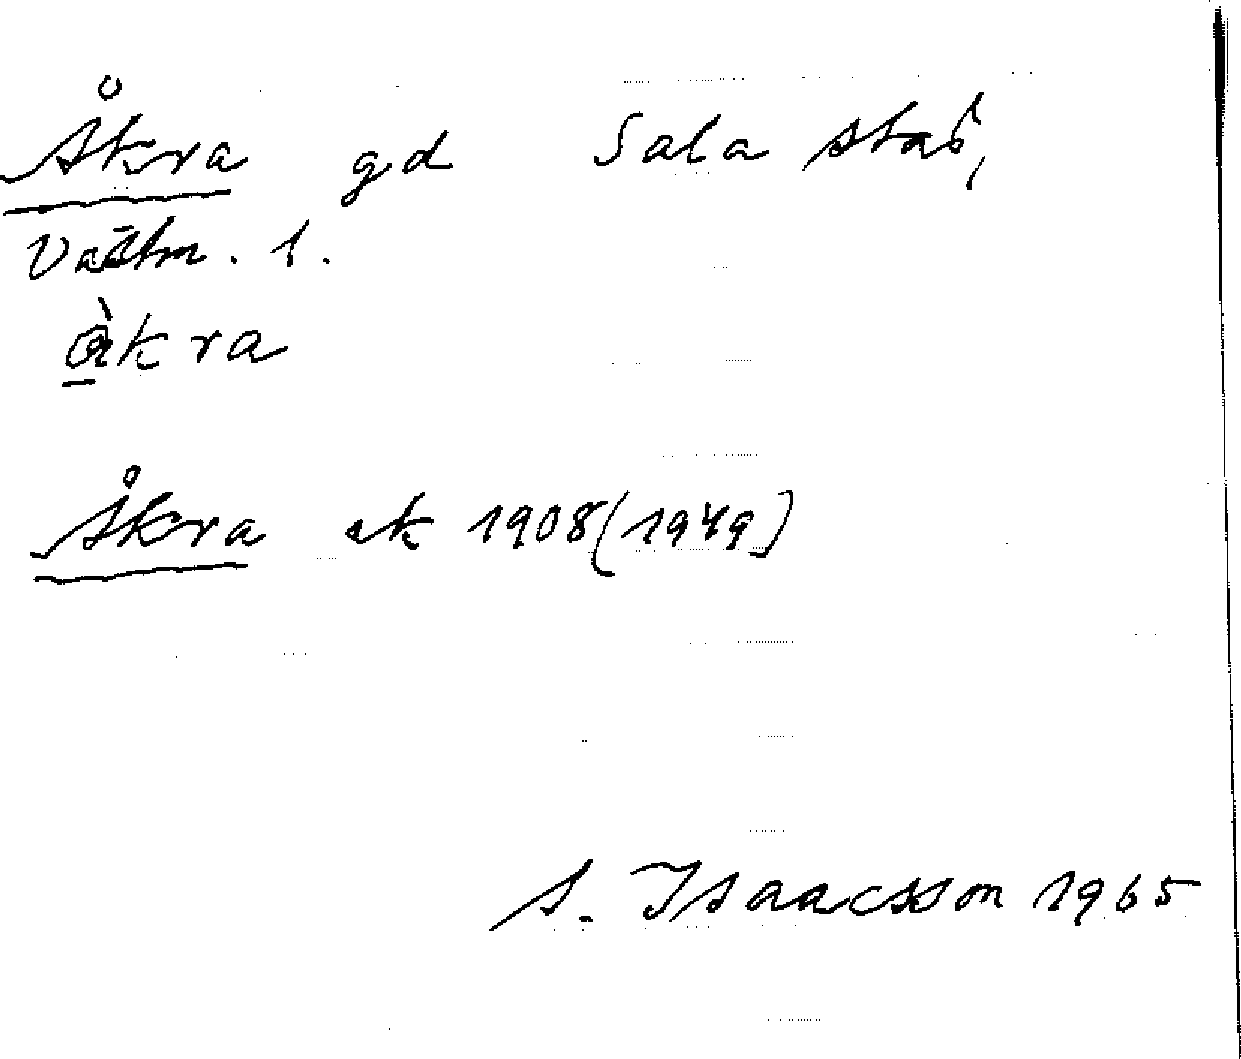 Åkra gd Sala stad,
Västm. l.
àkra
Åkra ek 1908 (1949)
S. Isaacsson 1965